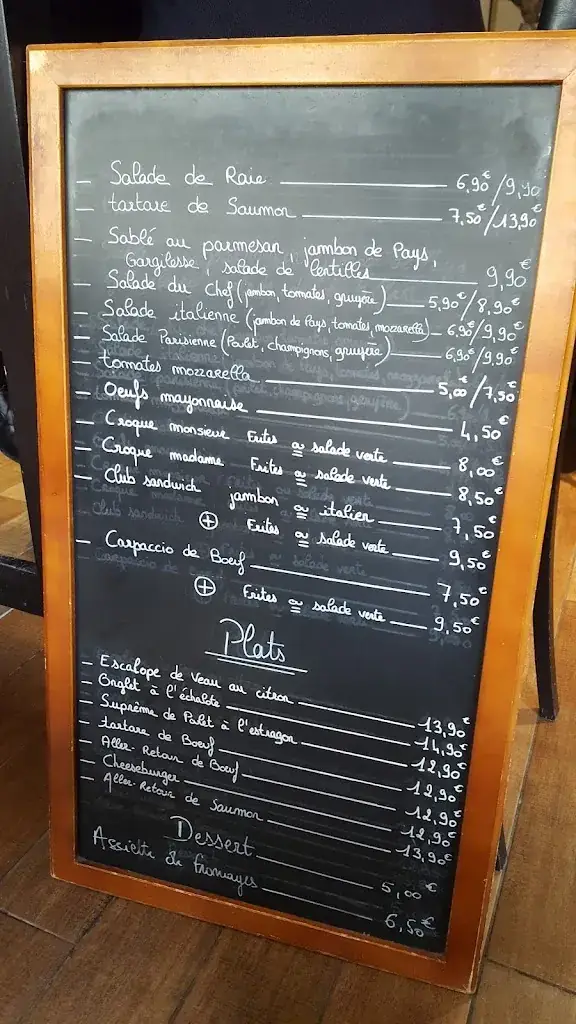 - Salade de Raie 6,90€/9,90
- tartare de Saumon 7,50€/13,90€
- Sablé au parmesan, jambon de Pays,
Gargilesse, salade de lentilles 9,90€
- Salade du Chef (jambon, tomates, gruyère) 5,90€/8,90€
- Salade italienne (jambon de Pays, tomates, mozzarella) 6,90€/9,90€
- Salade Parisienne (Poulet, champignons, gruyère) 6,90€/9,90€
- tomates mozzarella 5,00€/7,50€
- Oeufs mayonnaise 4,50€
- Croque monsieur Frites ou salade verte 8,00€
- Croque madame Frites ou salade verte 8,50€
- Club sandwich jambon ou italien 7,50€
+ Frites ou salade verte 9,50€
- Carpaccio de Boeuf 7,50€
+ Frites ou salade verte 9,50€
Plats
- Escalope de Veau au citron 13,90€
- Onglet à l'échalote 14,90€
- Suprême de Polet à l'estragon 12,90€
- tartare de Boeuf 12,90€
- Aller-Retour de Boeuf 12,90€
- Cheeseburger 12,90€
- Aller-Retour de Saumon 13,90€
Dessert 5,00€
Assiette de fromages 6,50€